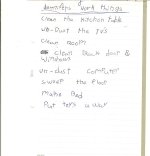 work things
clean the kitchen table
un-dust the TV's
clean room
clean back door &
windows
un-dust computer
sweep the floor
make Bed
Put toys away